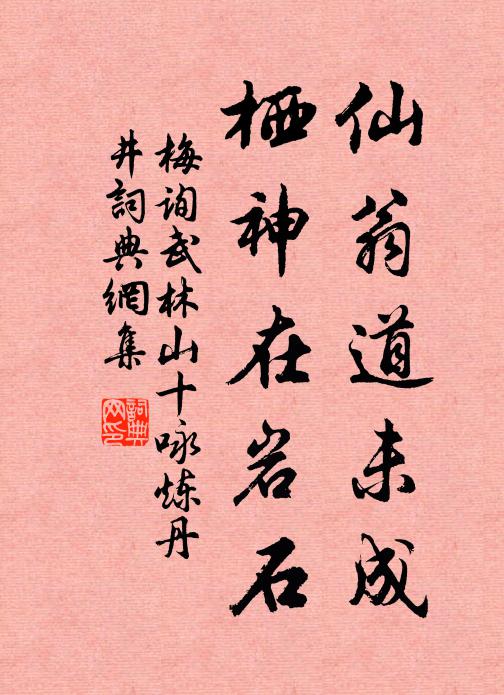 仙翁道未成
栖神在岩石
梅询武林山十咏炼丹
井詞典網集
詞典网印